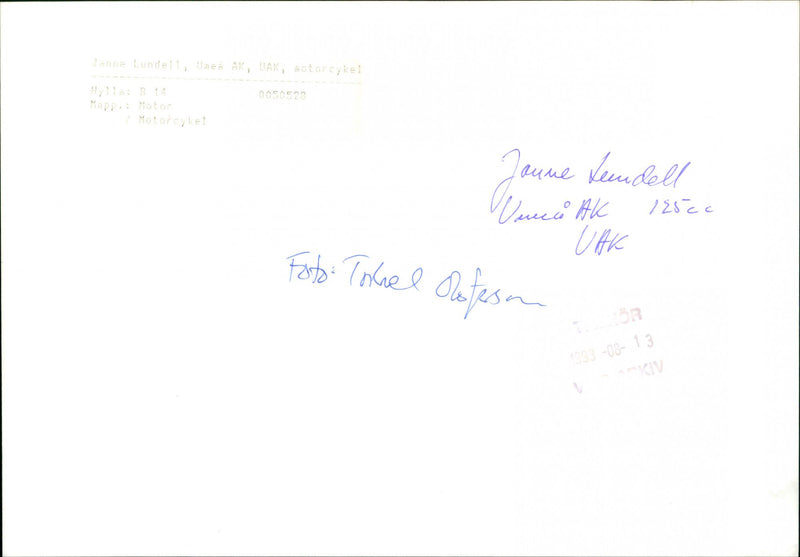 Janne Lundell, Umeå AK, UAK, motorcykel
Hylla: B 14 0050528
Mapp.: Motor
/ Motorcykel
Janne Lundell
Umeå AK 125cc
UAK
Foto: Torkel Olofsson
1993 -08- 13